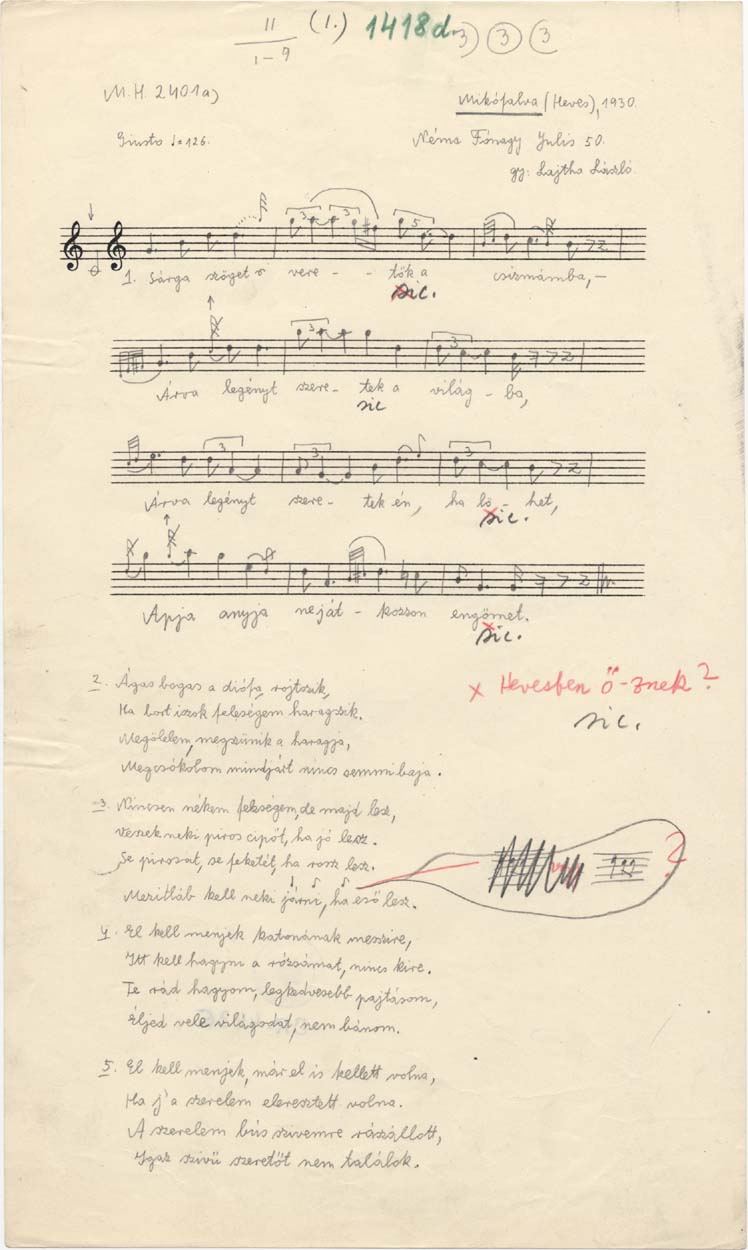 II (1.) 1418d. 3) 3 (3
1-9
M.H. 2401a)
Mikófalva (Heves), 1930.
Giusto ♩=126.
Néma Fónagy Julis 50.
gy: Lajtha László.
3 3 5
1. Sárga szöget vere - - tök a csizmámba, -
sic.
3 3
Árva legényt szere - tek a világ - ba,
sic
3 3 3
Árva legényt szere - tek én, ha lö - het,
sic.
Apja anyja neját - kozzon engömet.
sic.
2. Ágas bogas a diófa, rojtozik,
Ha bort iszok feleségem haragszik.
Megölelem, megszünik a haragja,
Megcsókolom mindjárt nincs semmi baja.
x Hevesben ö-znek?
sic.
3. Nincsen nékem feleségem, de majd lesz,
Veszek neki piros cipőt, ha jó lesz.
Se pirosat, se feketét, ha rossz lesz.
Mezitláb kell neki járni, ha eső lesz.
?
4. El kell menjek katonának messzire,
Itt kell hagyni a rózsámat, nincs kire.
Te rád hagyom, legkedvesebb pajtásom,
Éljed vele világodat, nem bánom.
5. El kell menjek, már el is kellett volna,
Ha j'a szerelem eleresztett volna.
A szerelem bús szivemre rászállott,
Igaz szivü szeretőt nem találok.